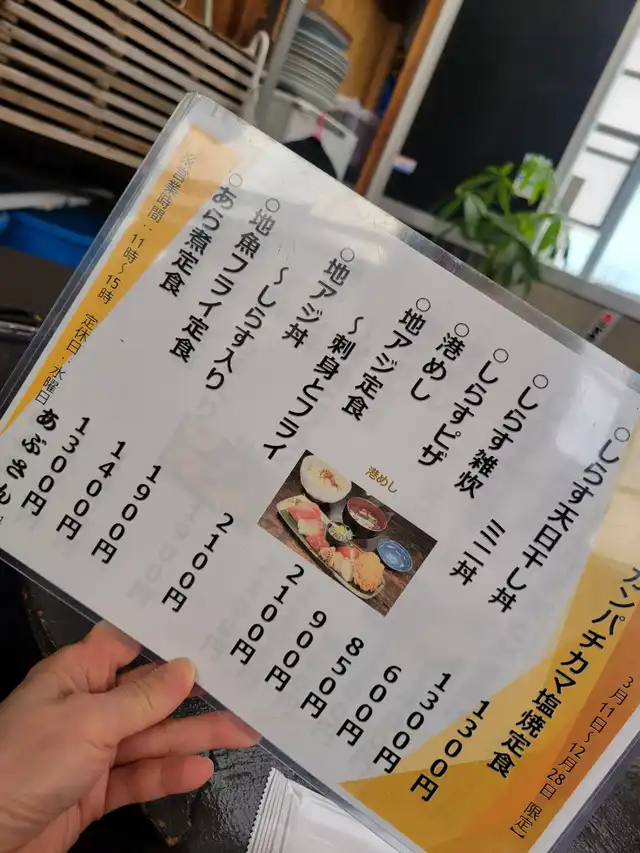 【3月11日~12月28日 限定】
カンパチカマ塩焼定食
○しらす天日干し丼 1300円
1300円
○しらす雑炊 ミニ丼 600円
○しらすピザ 850円
○港めし 900円
○地アジ定食 2100円
~刺身とフライ
○地アジ丼 2100円
~しらす入り
○地魚フライ定食 1900円
○あら煮定食 1400円
1300円
あぶさん
※営業時間：11時~15時 定休日：水曜日
港めし